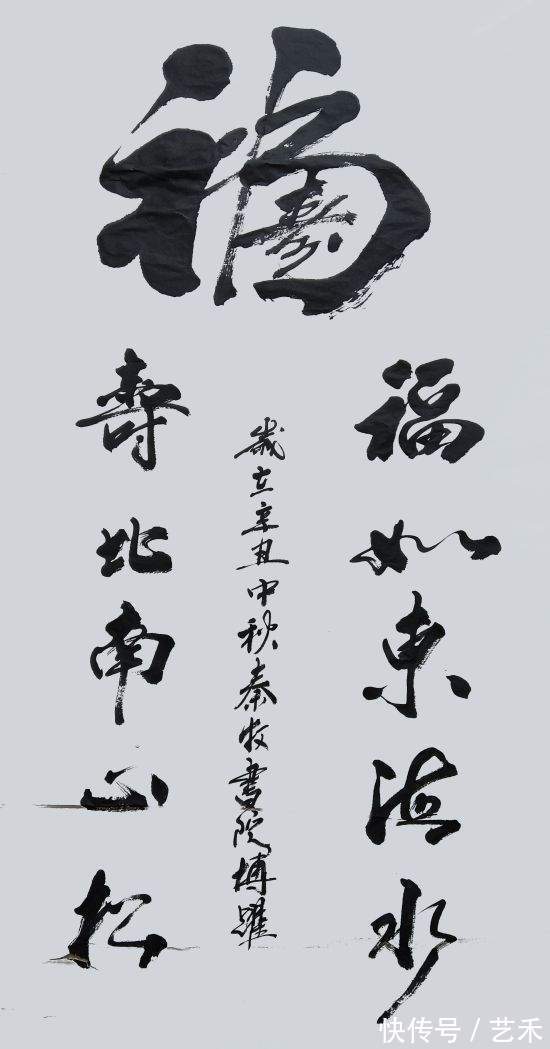 福
福如東海水
歲在辛丑中秋秦牧書院博躍
壽比南山松
快传号 / 艺禾